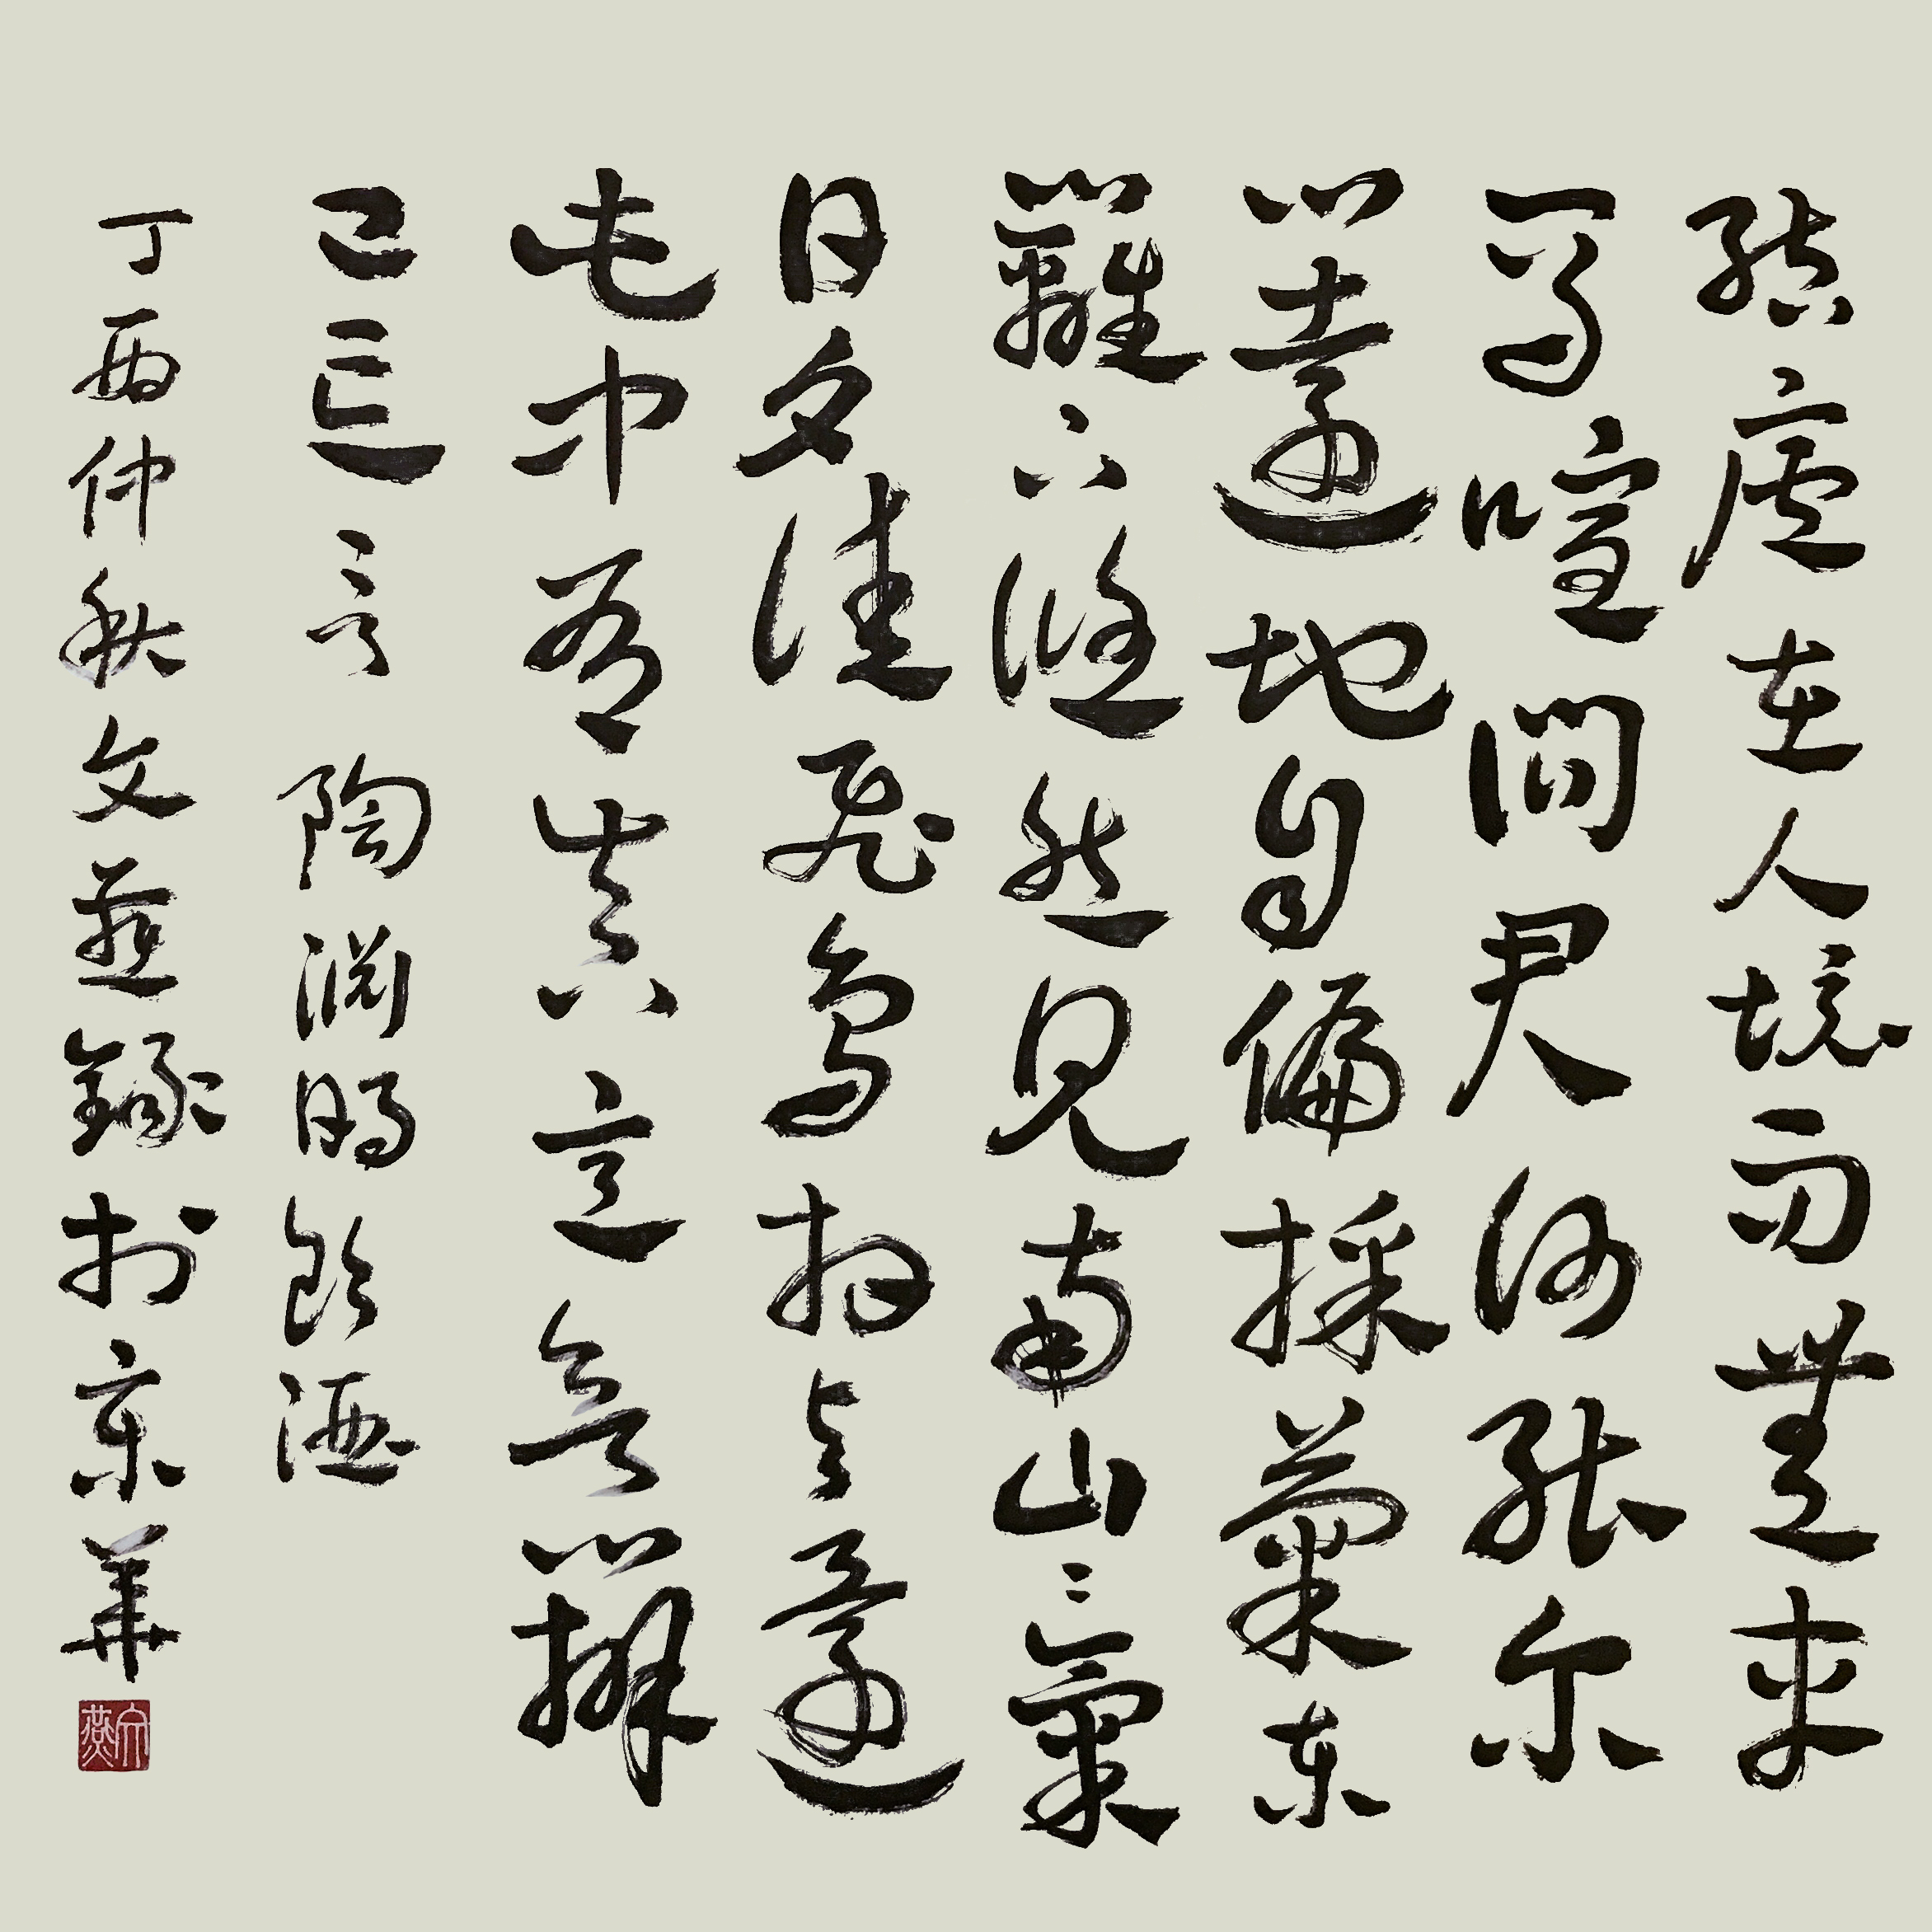 結廬在人境而無車
馬喧問君何能尔
心遠地自偏採菊东
籬下悠然見南山〻氣
日夕佳飛鳥相与還
此中有真意欲辯
已忘言 陶淵明飲酒
丁酉仲秋文燕錄於京華
文燕